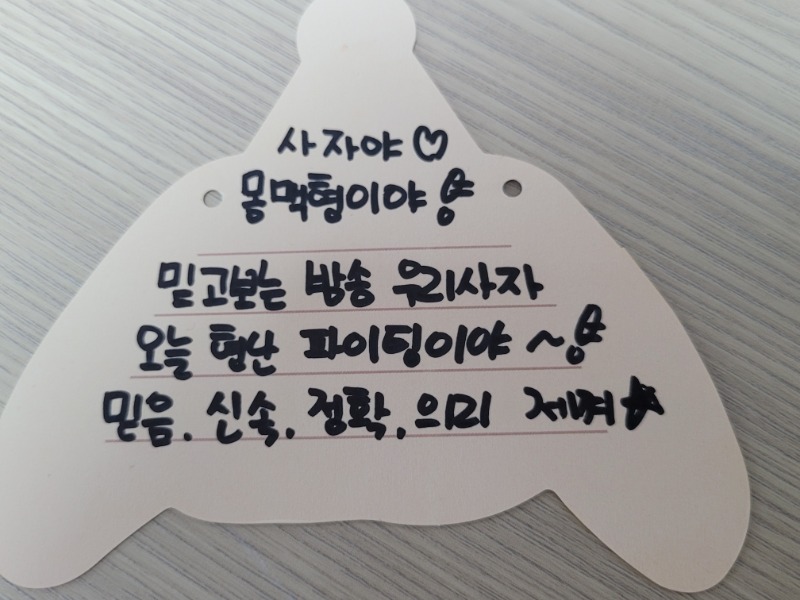 사자야♡
몽맥형이야
믿고보는 방송 우리사자
오늘 형산 파이팅이야 ~
믿음. 신속. 정확. 의리 제껴★